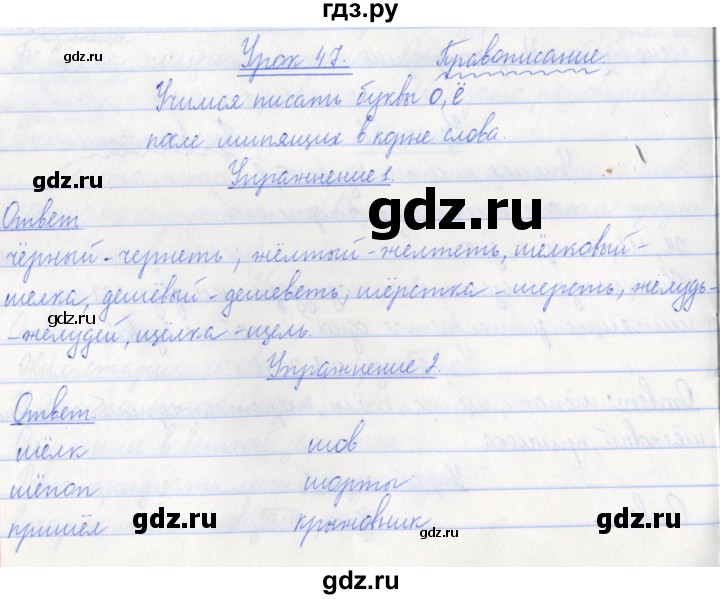 гдз.ру
Урок 47. Правописание
Учимся писать буквы о, ё
после шипящих в корне слова.
Упражнение 1.
gdz.ru
gdz.ru
Ответ
чёрный - чернеть, жёлтый - желтеть, шёлковый -
шелка, дешёвый - дешеветь, шёрстка - шерсть, жёлудь-
gdz.ru
gdz.ru
-желудей, щёлка - щель.
Упражнение 2.
gdz.ru
Ответ
шёлк шов
шёпоп шорты
пришёл крыжовник
gdz.ru
gdz.ru
gdz.ru
gdz.ru
gdz.ru